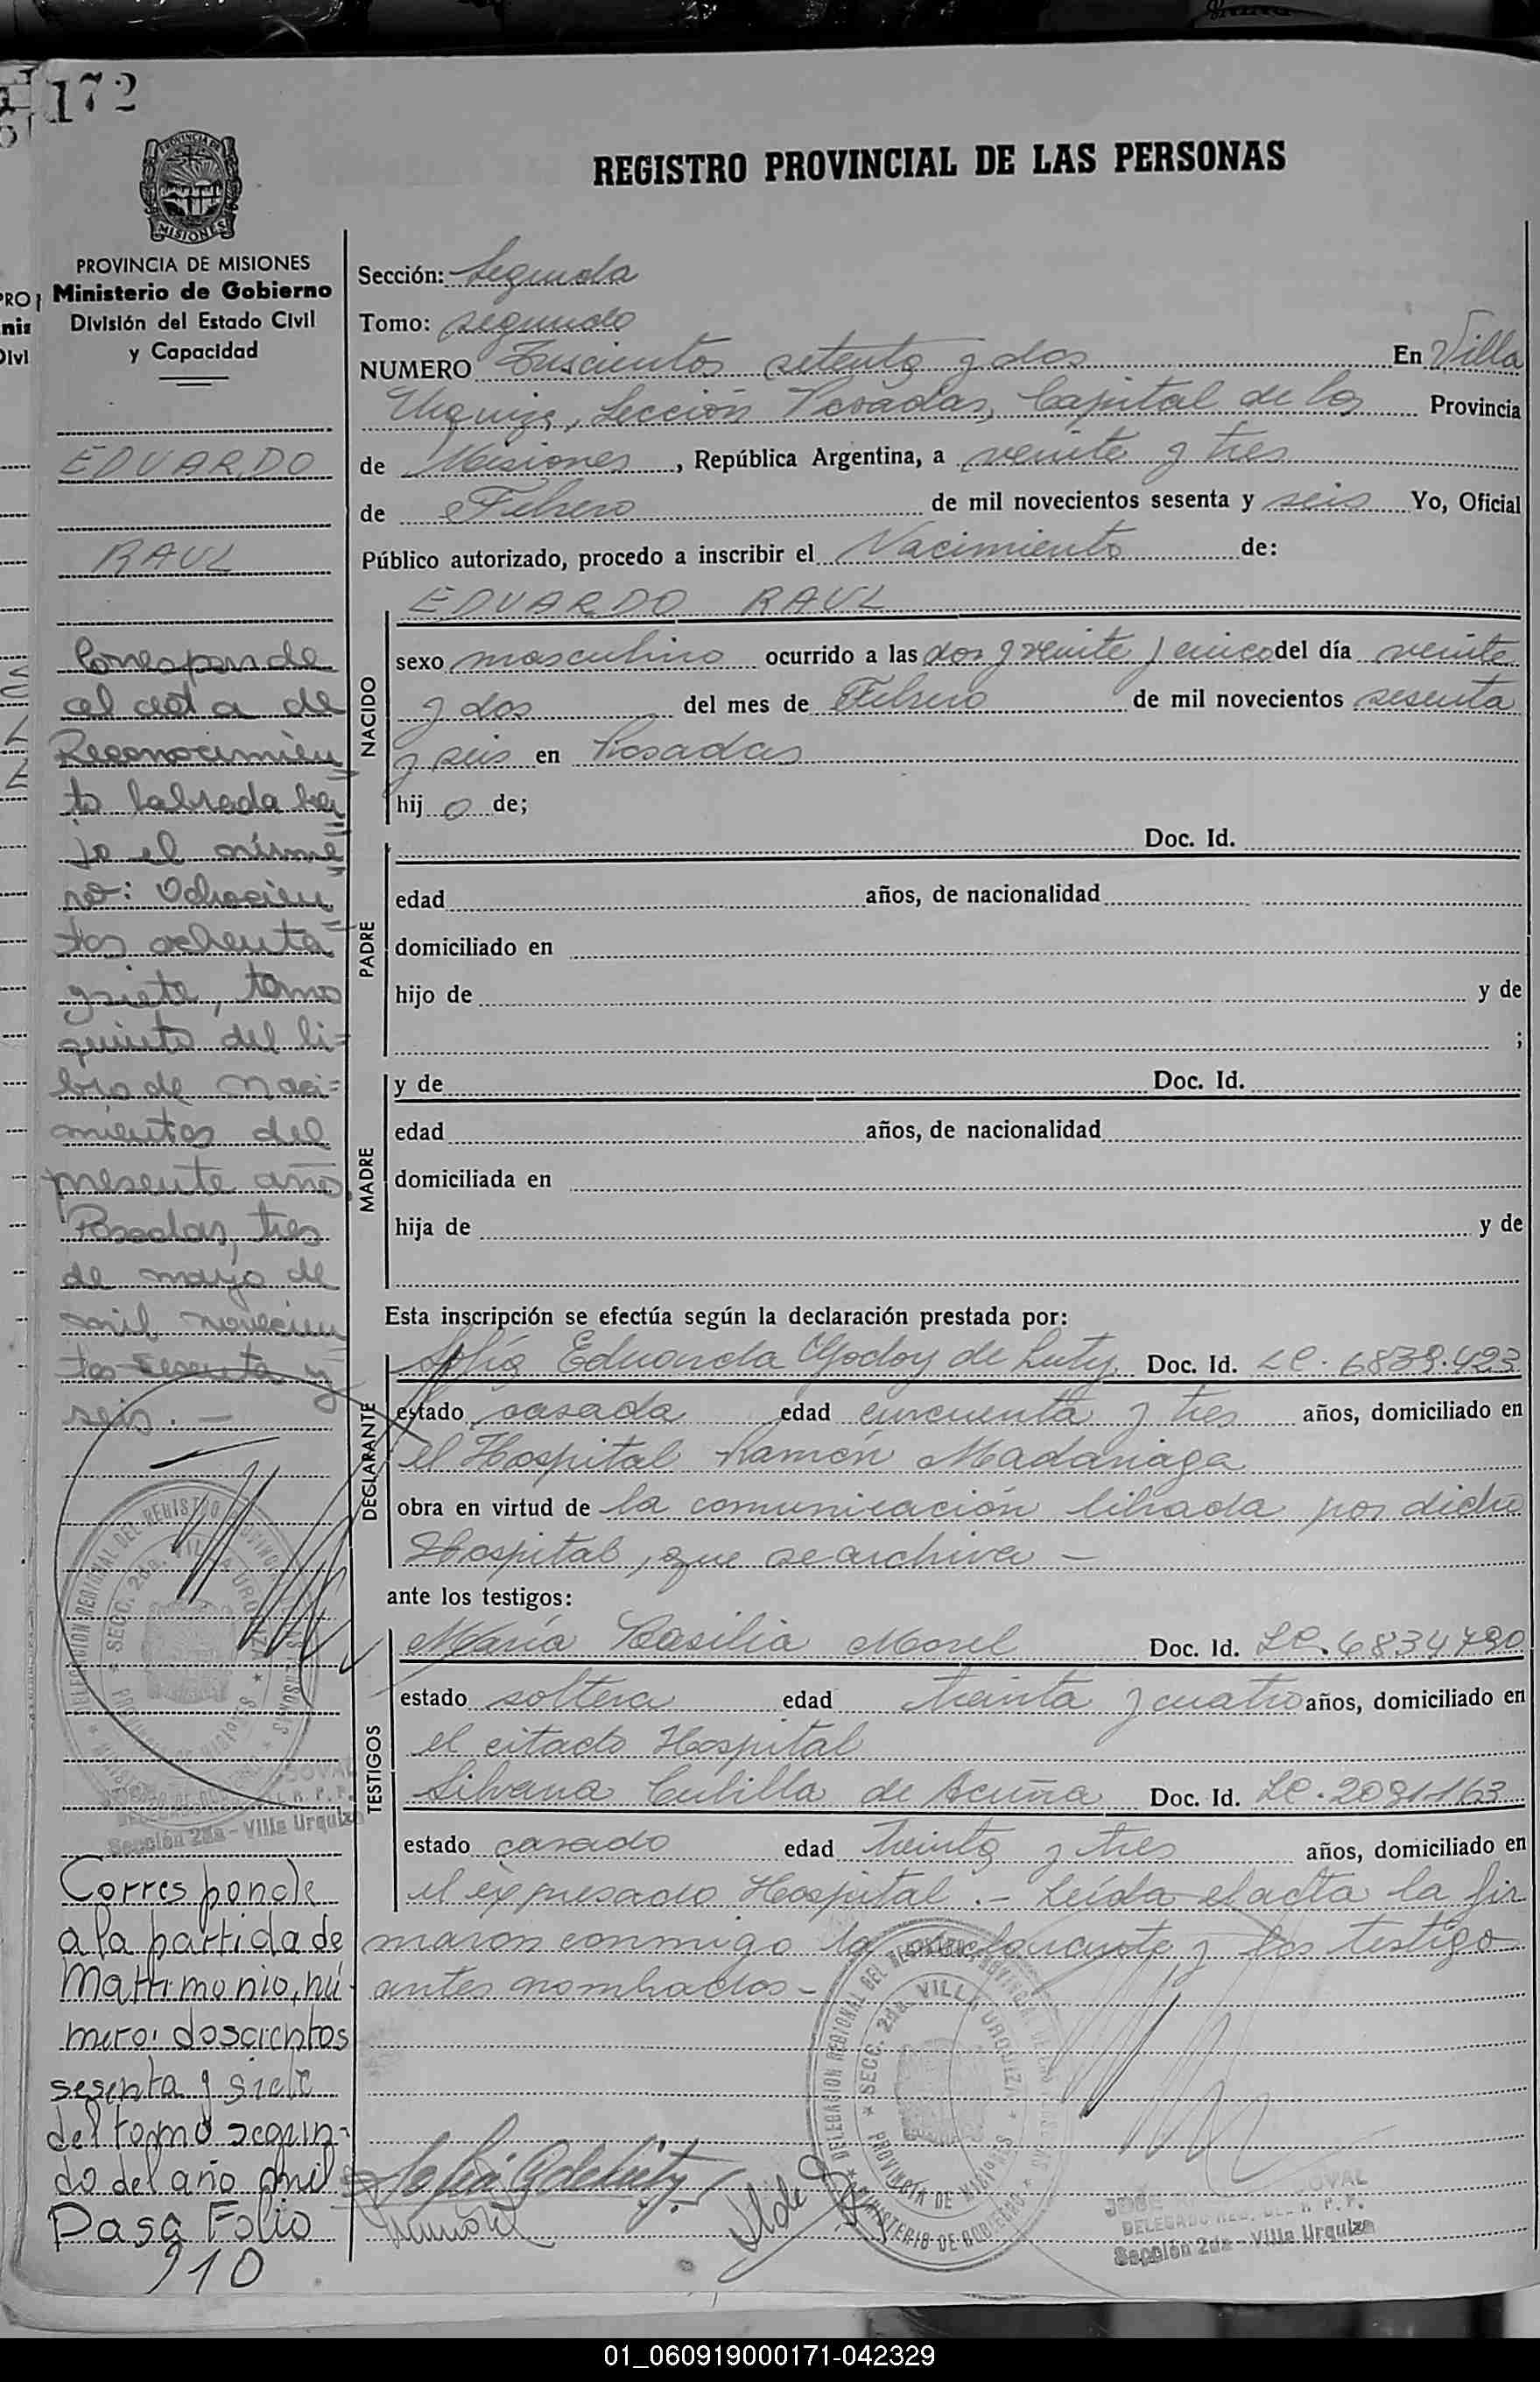 172
REGISTRO PROVINCIAL DE LAS PERSONAS
PROVINCIA DE MISIONES
Ministerio de Gobierno
División del Estado Civil
y Capacidad
EDUARDO
RAUL
Corresponde
al acta de
Reconocimien
to labrada ba
jo el núme
ro: Ochocien
tos ochenta
y siete, tomo
quinto del li=
bro de naci=
mientos del
presente año
Posadas, tres
de mayo de
mil novecien
tos sesenta y
seis.-
DELEGACION REGIONAL DEL REGISTRO PROVINCIAL DE LAS PERSONAS
SECC. 2da. VILLA URQUIZA
PROVINCIA DE MISIONES
Sección 2da - Villa Urquiza
Corresponde
a la partida de
Matrimonio, nú
mero: doscientos
sesenta y siete
del tomo segun-
do del año mil
Pasa Folio
910
Sección: Segunda
Tomo: segundo
NUMERO setenta y dos En Villa
Urquiza, Sección Posadas, Capital de la Provincia
de Misiones, República Argentina, a veinte y tres
de Febrero de mil novecientos sesenta y seis Yo, Oficial
Público autorizado, procedo a inscribir el Nacimiento de:
EDUARDO RAUL
NACIDO
sexo masculino ocurrido a las dos y veinte y cinco del día veinte
y dos del mes de Febrero de mil novecientos sesenta
y seis en Posadas
hijo de;
PADRE
Doc. Id.
edad años, de nacionalidad
domiciliado en
hijo de y de
;
MADRE
y de Doc. Id.
edad años, de nacionalidad
domiciliada en
hija de y de
Esta inscripción se efectúa según la declaración prestada por:
DECLARANTE
Sofía Eduarda Godoy de Luty Doc. Id. LC. 6839.423
estado casada edad cincuenta y tres años, domiciliado en
el Hospital Ramón Madariaga
obra en virtud de la comunicación librada por dicho
Hospital, que se archiva -
ante los testigos:
TESTIGOS
María Basilia Morel Doc. Id. LC. 6834790
estado soltera edad treinta y cuatro años, domiciliado en
el citado Hospital
Silvana Cubilla de Acuña Doc. Id. LC. 2091163
estado casado edad treinta y tres años, domiciliado en
el expresado Hospital.- Leída el acta la fir
maron conmigo la declarante y los testigo
antes nombrados -
DELEGACION REGIONAL DEL REGISTRO PROVINCIAL DE LAS PERSONAS
SECC. 2da. VILLA URQUIZA
PROVINCIA DE MISIONES
MINISTERIO DE GOBIERNO
Sección 2da - Villa Urquiza
01_060919000171-042329